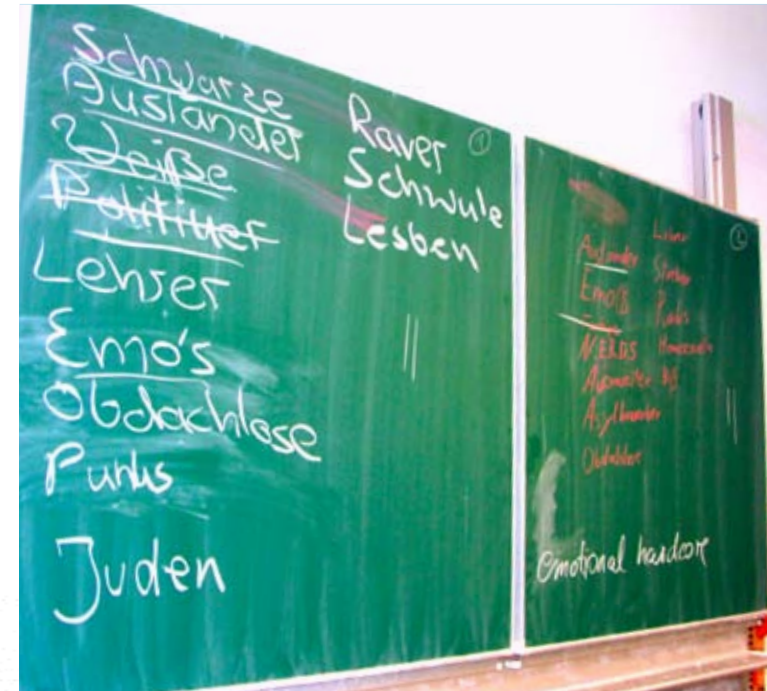 Schwarze
Ausländer
Weiße
Politiker
Lehrer
Emo's
Obdachlose
Punks
Juden
Raver
Schwule
Lesben
1
Ausländer
Emo's
NERDS
Asylbewerber
Obdachlose
Lehrer
Streber
Punks
Homosexuelle
2
emotional hardcore